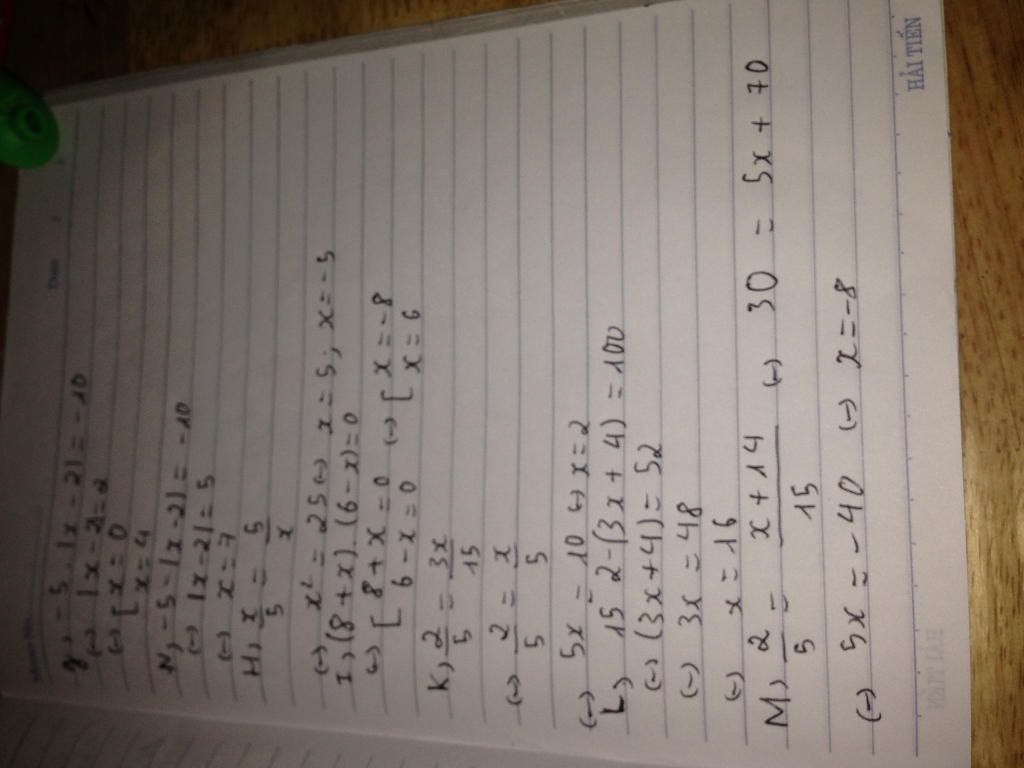 g, -5 . |x - 2| = -10
(-) |x - 2| = 2
(-) [ x = 0
x = 4
N, -5 - |x - 2| = -10
(-) |x - 2| = 5
(-) x = 7
H, x/5 = 5/x
(-) x² = 25 (-) x = 5 ; x = -5
I, (8 + x) . (6 - x) = 0
(-) [ 8 + x = 0 (-) [ x = -8
6 - x = 0 x = 6
K, 2/5 = 3x/15
(-) 2/5 = x/5
(-) 5x = 10 (-) x = 2
L, 152 - (3x + 4) = 100
(-) (3x + 4) = 52
(-) 3x = 48
(-) x = 16
M, 2/5 = x + 14/15 (-) 30 = 5x + 70
(-) 5x = -40 (-) x = -8
HẢI TIẾN